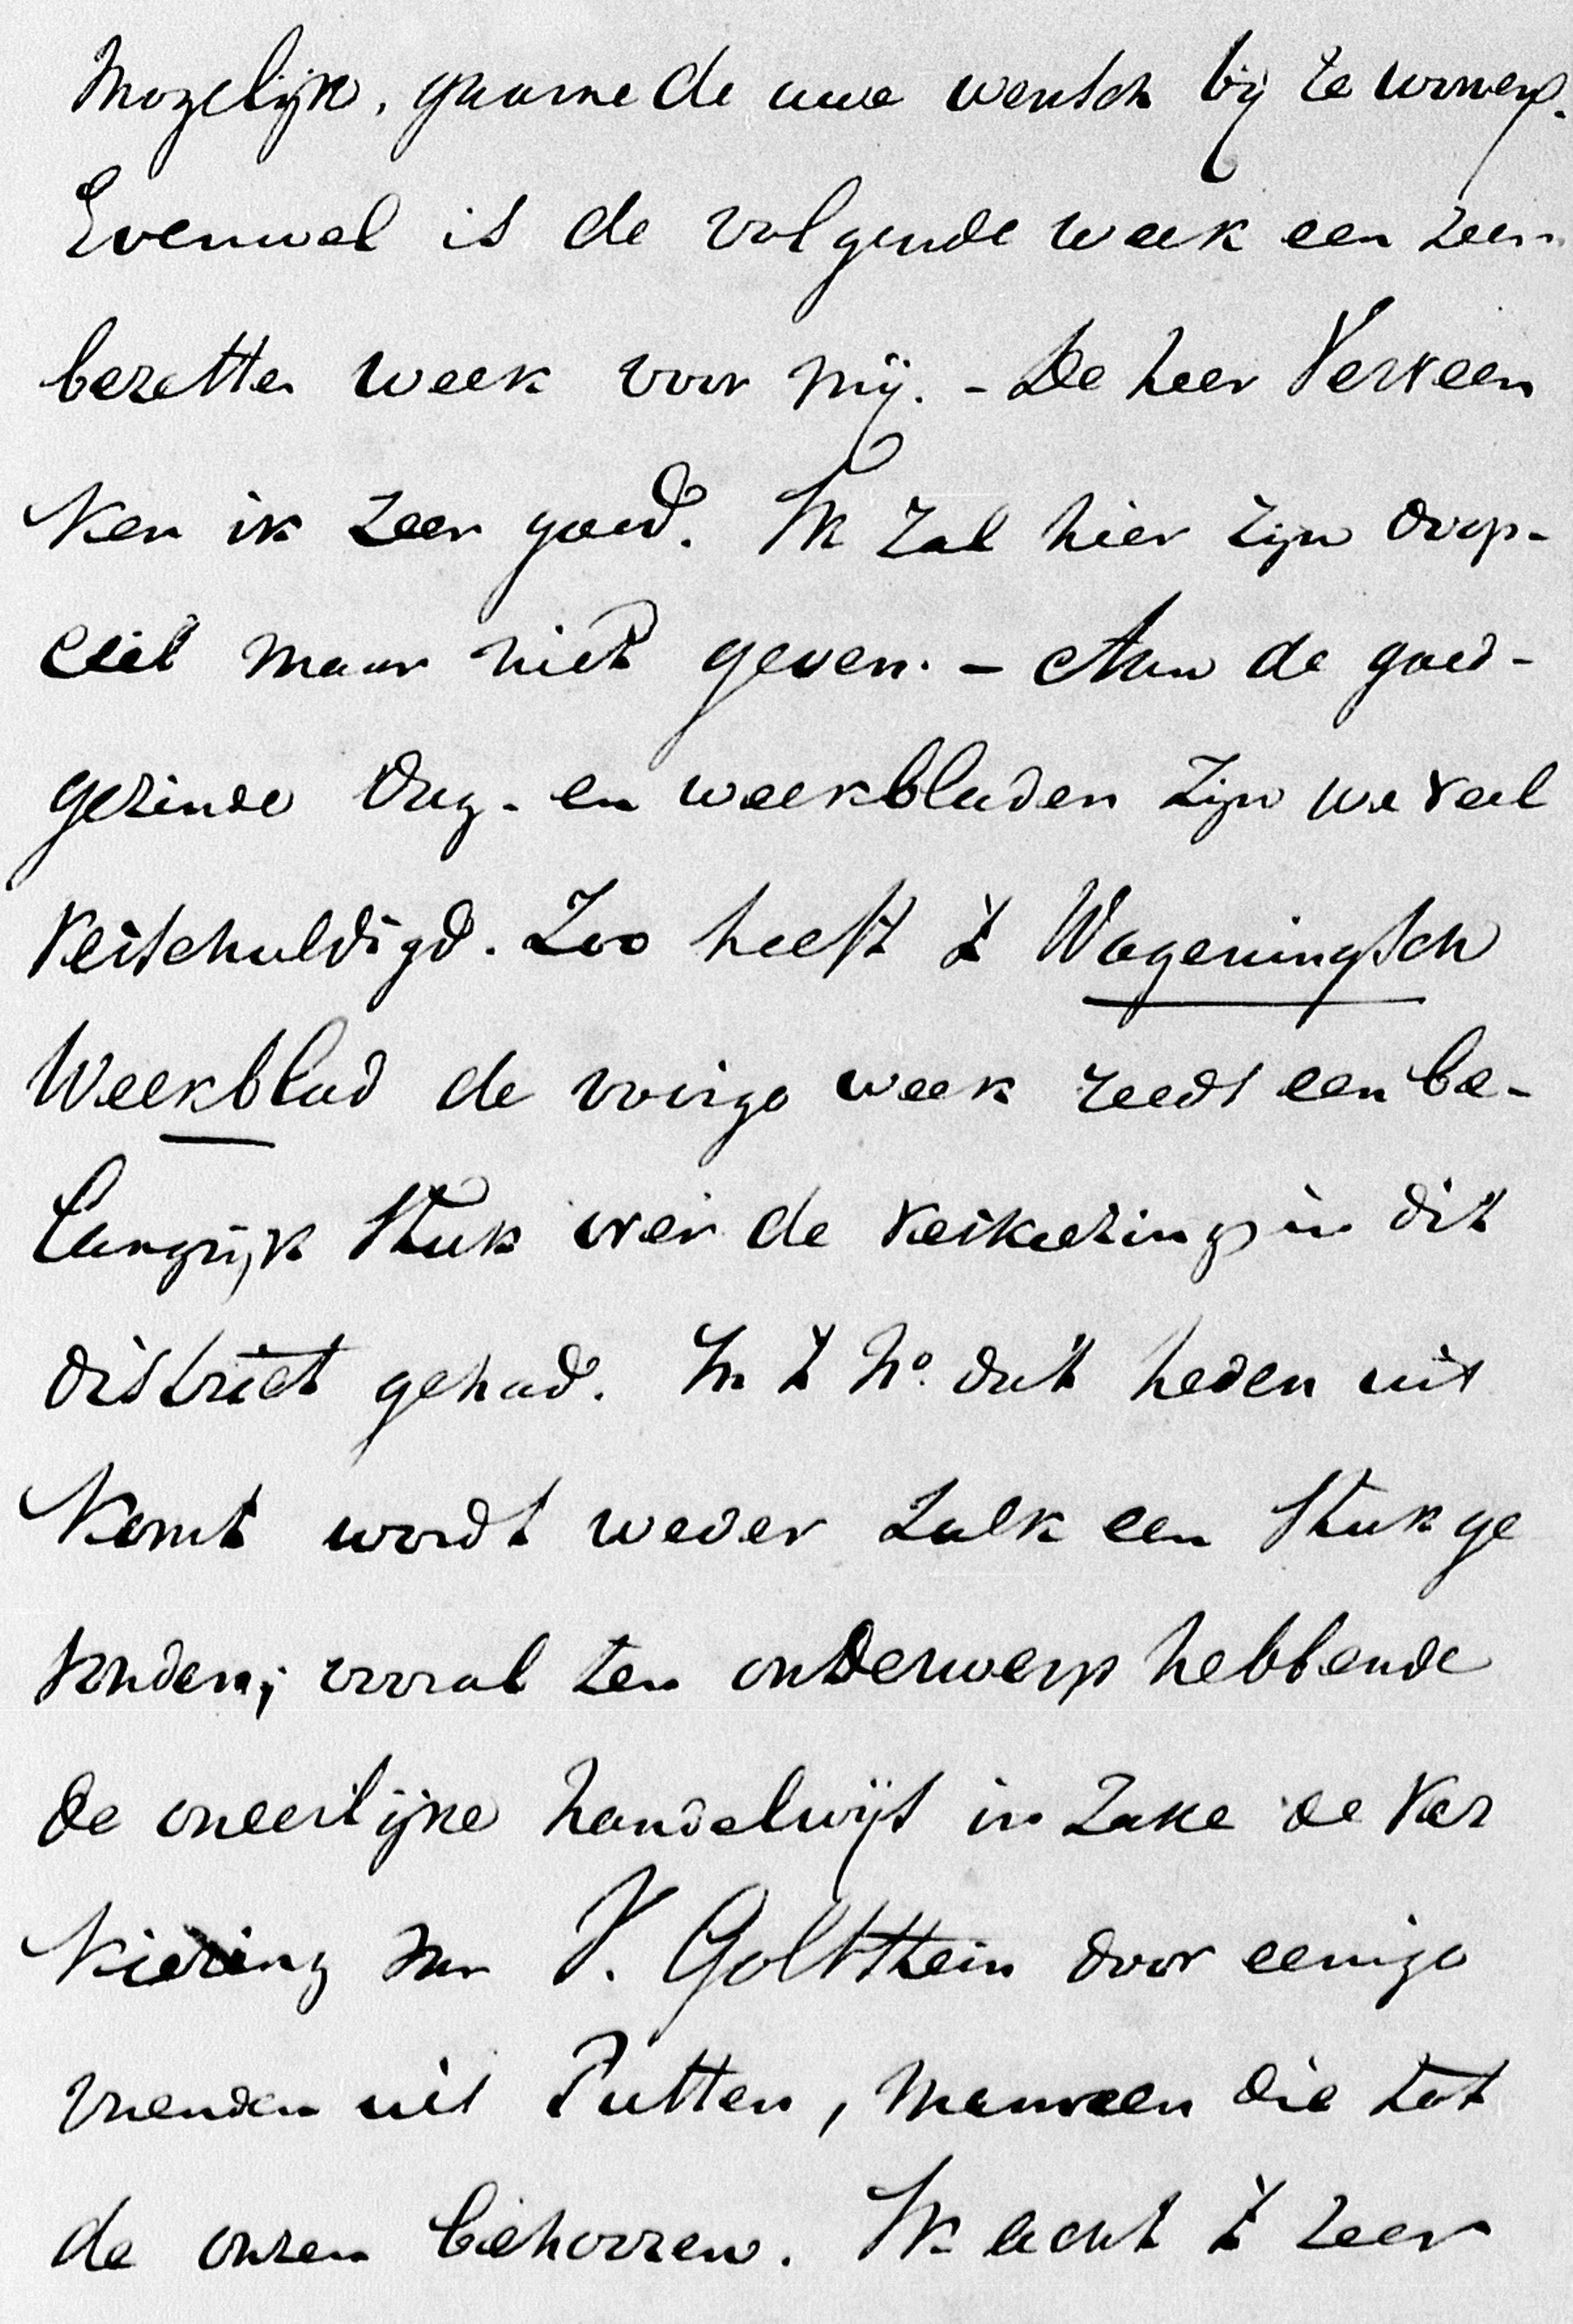 mogelijk, gaarne de uwe wensch bij te wonen.
Evenwel is de volgende week een zeer
bezette week voor mij. - De heer Verveen
ken ik zeer goed. Ik zal hier zijn
maar niet geven. - Aan de goed-
gezinde dag- en weekbladen zijn we veel
verschuldigd. Zoo heeft 't Wageningsch
Weekblad de vorige week reeds een be-
langrijk stuk over de verkiezing in dit
district gehad. In 't No. dat heden uit
komt wordt weder zulk een stuk ge
vonden; vooral ten onderwerp hebbende
de oneerlijke handelwijs in zake de ver
kiezing van V. Goltstein door eenige
vrienden uit Putten, mannen die tot
de onzen behooren. Ik acht 't zeer